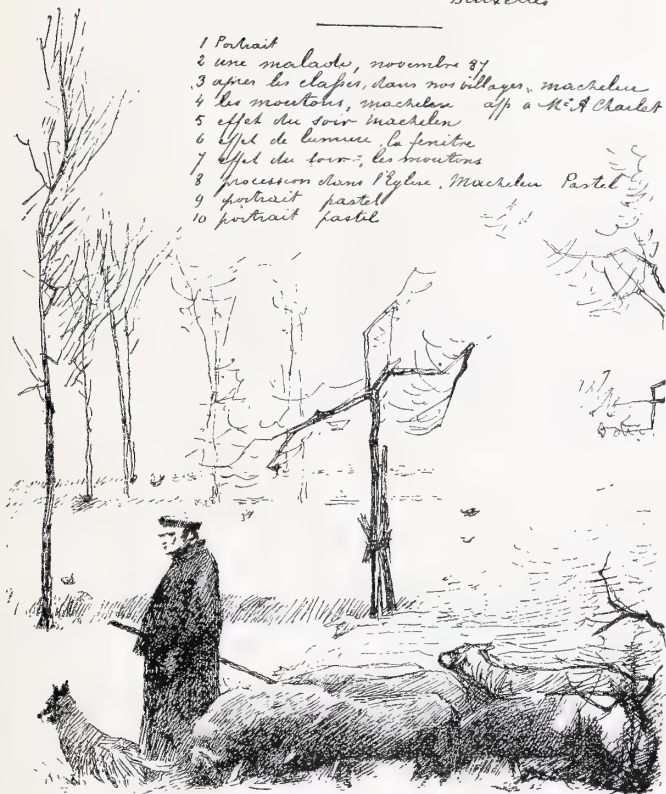 Bruxelles
1 Portrait
2 une malade, novembre 87
3 apres les classes, dans nos villages, machelen
4 les moutons, machelen app a Mr A Charlet
5 effet du soir machelen
6 effet de lumiere, la fenêtre
7 effet du soir, les moutons
8 procession dans l'Eglise, Machelen Pastel
9 portrait pastel
10 portrait pastel